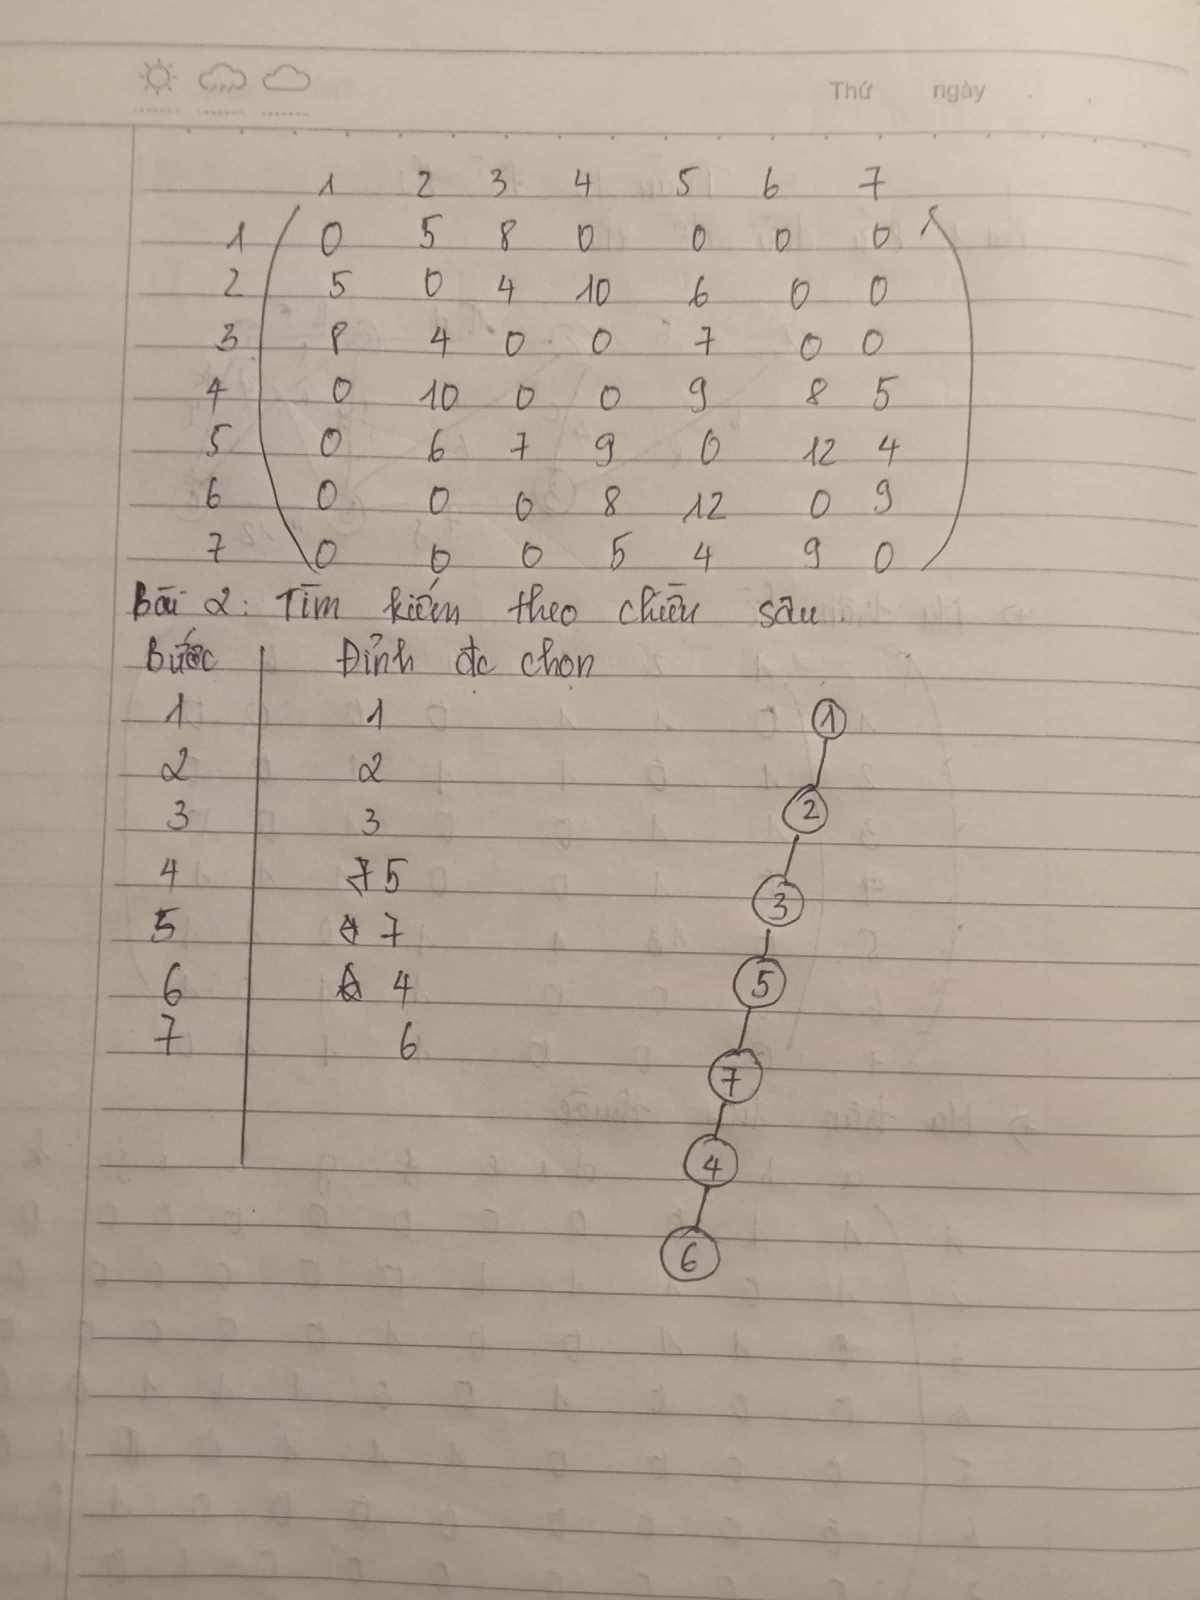 Thứ ngày
1 2 3 4 5 6 7
1 0 5 8 0 0 0 0
2 5 0 4 10 6 0 0
3 8 4 0 0 7 0 0
4 0 10 0 0 9 8 5
5 0 6 7 9 0 12 4
6 0 0 0 8 12 0 9
7 0 0 0 5 4 9 0
Bài 2: Tìm kiếm theo chiều sâu
Bước Đỉnh đc chọn
1 1
2 2
3 3
4 5
5 7
6 4
7 6
1
2
3
5
7
4
6